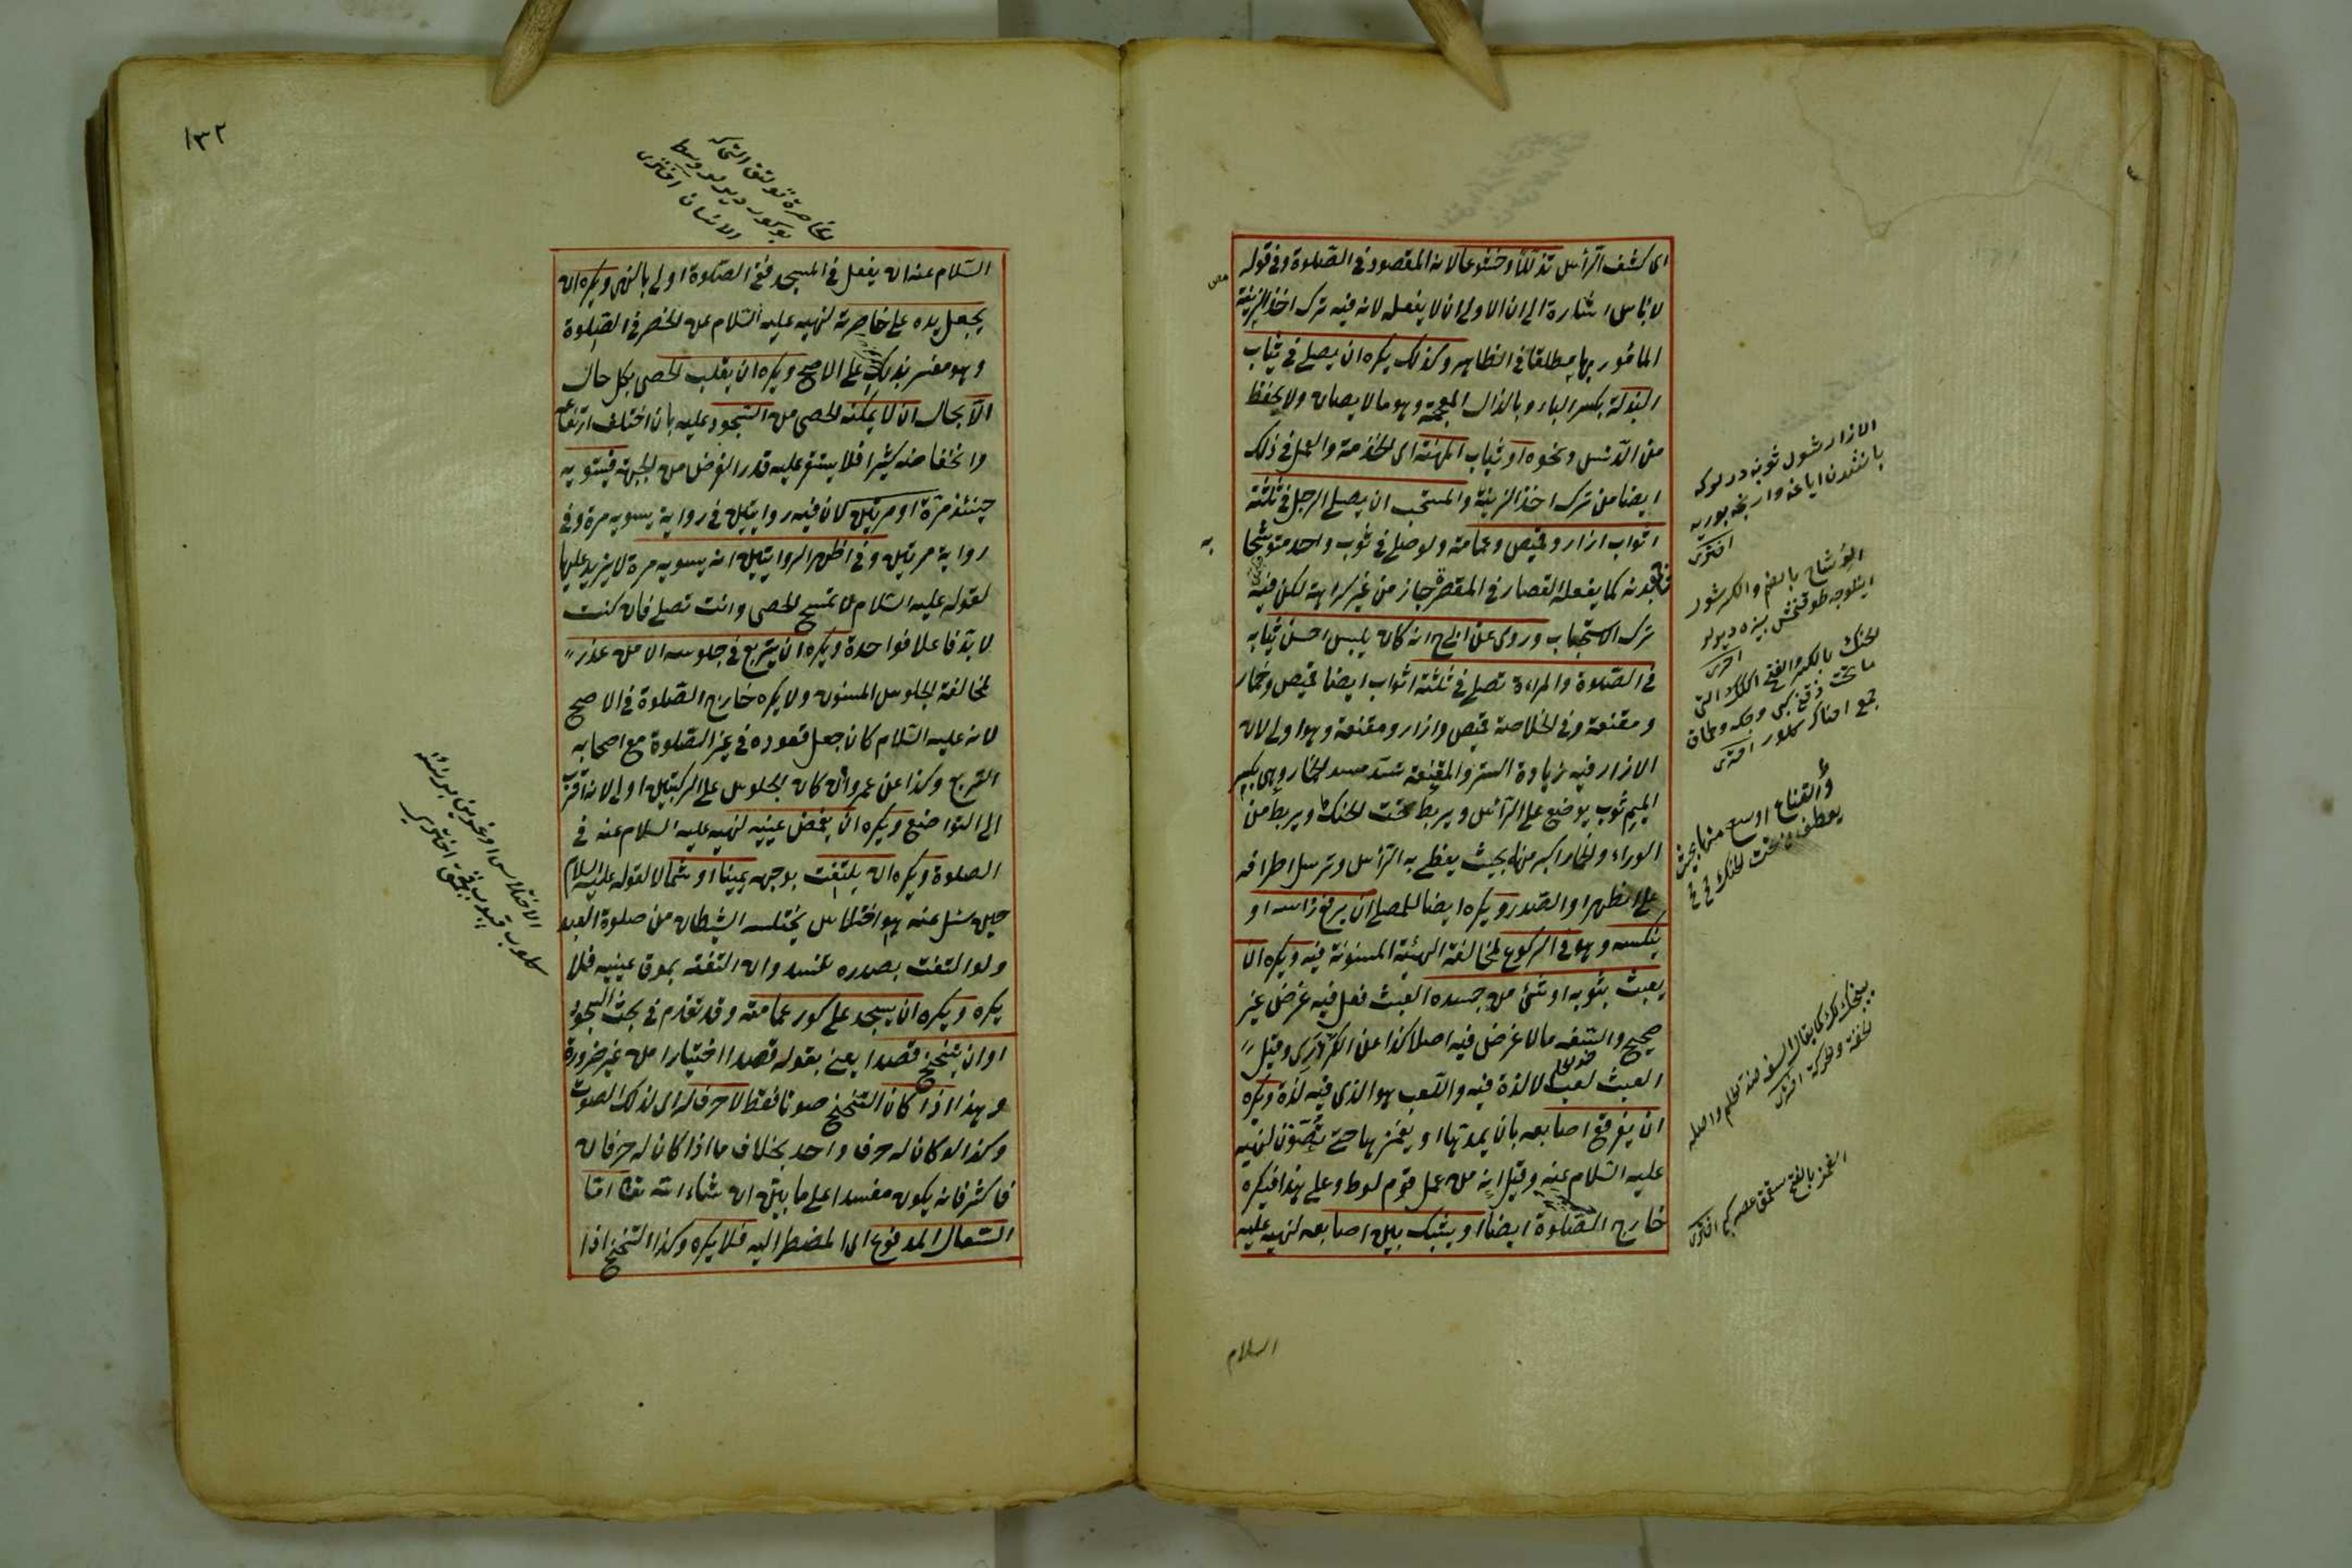 اى كشف الرأس تذللا وخشوعا لانه المقصود فى الصلوة وفى قوله
لا بأس اشارة الى ان الاولى ان لا يفعله لانه فيه ترك اخذ الزينة
المأمور بها مطلقا فى الظاهر وكذلك يكره ان يصلى فى ثياب
البذلة بكسر الباء وبالذال المعجمة وهو ما لا يصان ولا يحفظ
من الدنس ونحوه او ثياب المهنة اى الخدمة والعمل فى ذلك
ايضا من ترك اخذ الزينة والمستحب ان يصلى الرجل فى ثلثة
اثواب ازار وقميص وعمامة ولو صلى فى ثوب واحد متوشحا
به
بدنه كما يفعله القصار فى المقصرة جاز من غير كراهة لكن فيه
ترك الاستحباب وروى عن ابى ح انه كان يلبس احسن ثيابه
فى الصلوة والمراءة تصلى فى ثلثة اثواب ايضا قميص وخمار
ومقنعة وفى الخلاصة قميص وازار ومقنعة وهو اولى لان
الازار فيه زيادة الستر والمقنعة تسد مسد الخمار وهى بكسر
الميم ثوب يوضع على الرأس ويربط تحت الحنك ويربط من
الوراء والخمار اكبر منها بحيث يغطى به الرأس وترسل اطرافه
على الظهر او الصدر ويكره ايضا للمصلى ان يرفع رأسه او
ينكسه وهو فى الركوع لمخالفة الهيئة المسنونة فيه ويكره ان
يعبث بثوبه او شئ من جسده العبث فعل فيه غرض غير
صحيح والسفه ما لا غرض فيه اصلا كذا عن الكردرى وقيل
العبث لعب لا لذة فيه واللعب هو الذى فيه لذة ويكره
ان يفرقع اصابعه بان يمدها او يغمزها حتى تصوت لنهيه
عليه السلام عنه وقيل انه من عمل قوم لوط وعلى هذا فيكره
خارج الصلوة ايضا او يشبك بين اصابعه لنهيه عليه
السلام
الازار شول ثوبه در لوكه
افترى
الوشاح بالضم والكسر شور
الحنك بالكسر والفتح
ما تحت ذقن
والقناع اوسع منها بحيث
يعطف من تحت الحنك
الغمز بالفتح صقمق
١٣٢
السلام عنه ان يفعل فى المسجد ففى الصلوة اولى بالنهى ويكره ان
يجعل يده على خاصرته لنهيه عليه السلام عن الخصر فى الصلوة
وهو مفسر بذلك على الاصح ويكره ان يقلب الحصى بكل حال
الا بحال ان لا يمكنه الحصى من السجود عليه بان اختلف ارتفاعا
وانخفاضا كثيرا فلا يستقر عليه قدر الفرض من الجبهة فيسويه
حينئذ مرة او مرتين كان فيه روايتين فى رواية يسويه مرة وفى
رواية مرتين وفى اظهر الروايتين انه يسويه مرة لا يزيد عليها
لقوله عليه السلام لا تمسح الحصى وانت تصلى فان كنت
لا بد فاعلا فواحدة ويكره ان يتربع فى جلوسه الا من عذر
لمخالفة الجلوس المسنون ولا يكره خارج الصلوة فى الاصح
لانه عليه السلام كان جعل قعوده فى غير الصلوة مع اصحابه
التربع وكذا عن عمر وان كان الجلوس على الركبتين اولى لانه اقرب
الى التواضع ويكره ان يغمض عينيه لنهيه عليه السلام عنه فى
الصلوة ويكره ان يلتفت بوجهه يمينا او شمالا لقوله عليه السلام
حين سئل عنه هو اختلاس يختلسه الشيطان من صلوة العبد
ولو التفت بصدره تفسد وان التفت بموق عينيه فلا
يكره ويكره ان يسجد على كور عمامته وقد تقدم فى بحث السجود
او ان يتنحنح قصدا يعنى بقوله قصدا اختيارا من غير ضرورة
وهذا اذا كان التنحنح صوتا فقط لا حرف له اى لذلك الصوت
وكذا لو كان له حرف واحد بخلاف ما اذا كان له حرفان
فاكثر فانه يكون مفسدا على ما يبين ان شاء الله تعا اما
السعال المدفوع اى المضطر اليه فلا يكره وكذا التنحنح اذا